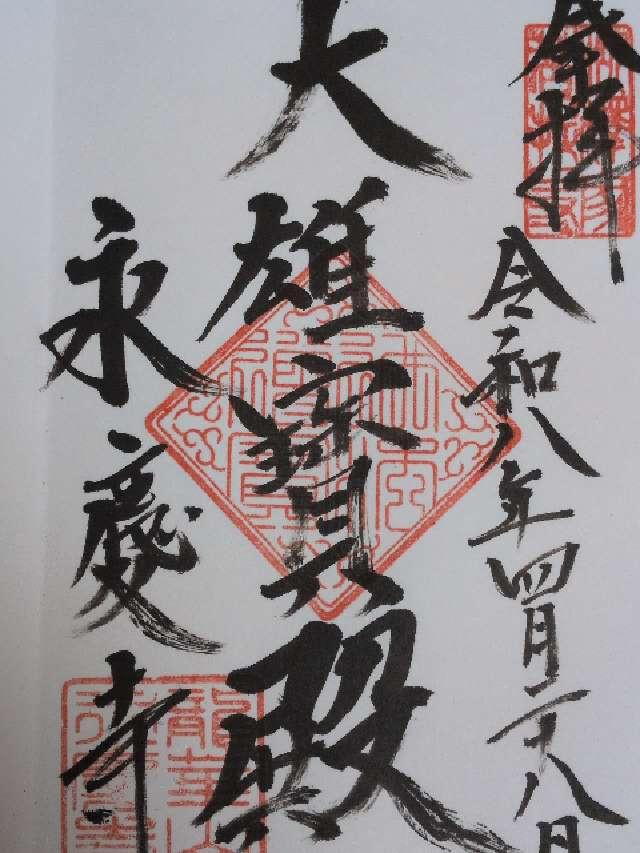 奉拝
令和八年四月二十八日
大雄寶殿
永慶寺